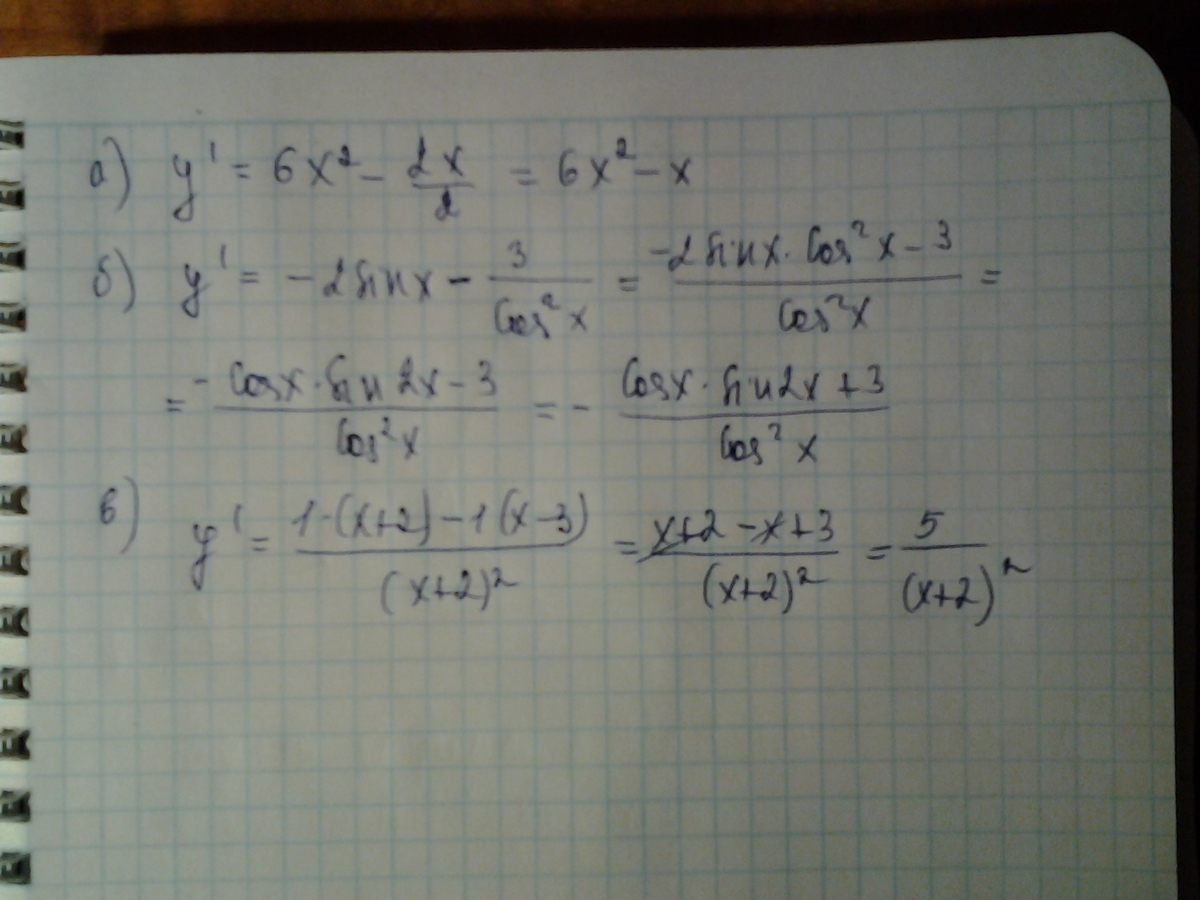 а) y' = 6x² - 2x/2 = 6x² - x
б) y' = -2sinx - 3/cos²x = (-2sinx·cos²x - 3)/cos²x =
= (-cosx·sin2x - 3)/cos²x = - (cosx·sin2x + 3)/cos²x
в) y' = (1·(x+2) - 1(x-3))/(x+2)² = (x+2-x+3)/(x+2)² = 5/(x+2)²